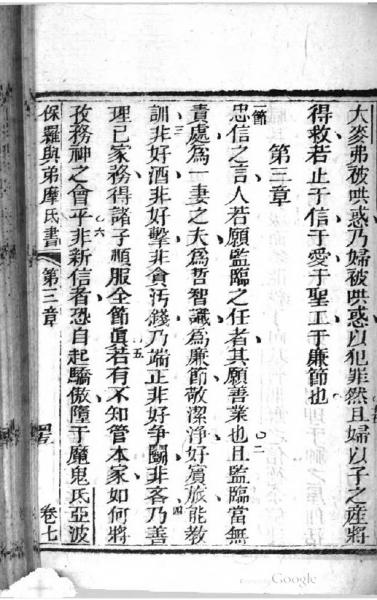 大麥弗被哄惑乃婦被哄惑以犯罪然且婦以子之產將
得救若止于信于愛于聖工于廉節也
第三章
一節
忠信之言人若願監臨之任者其願善業也二且監臨當無
責處為一妻之夫為哲智識為廉節敬潔淨好賓旅能教
訓三非好酒非好擊非貪汚錢乃端正非好爭鬬非吝四乃善
理已家務得諸子順服全節眞五若有不知管本家如何將
孜務神之會乎六非新信者恐自起驕傲墮于魔鬼氏亞波
保羅與弟摩氐書 第三章 卷七
Google